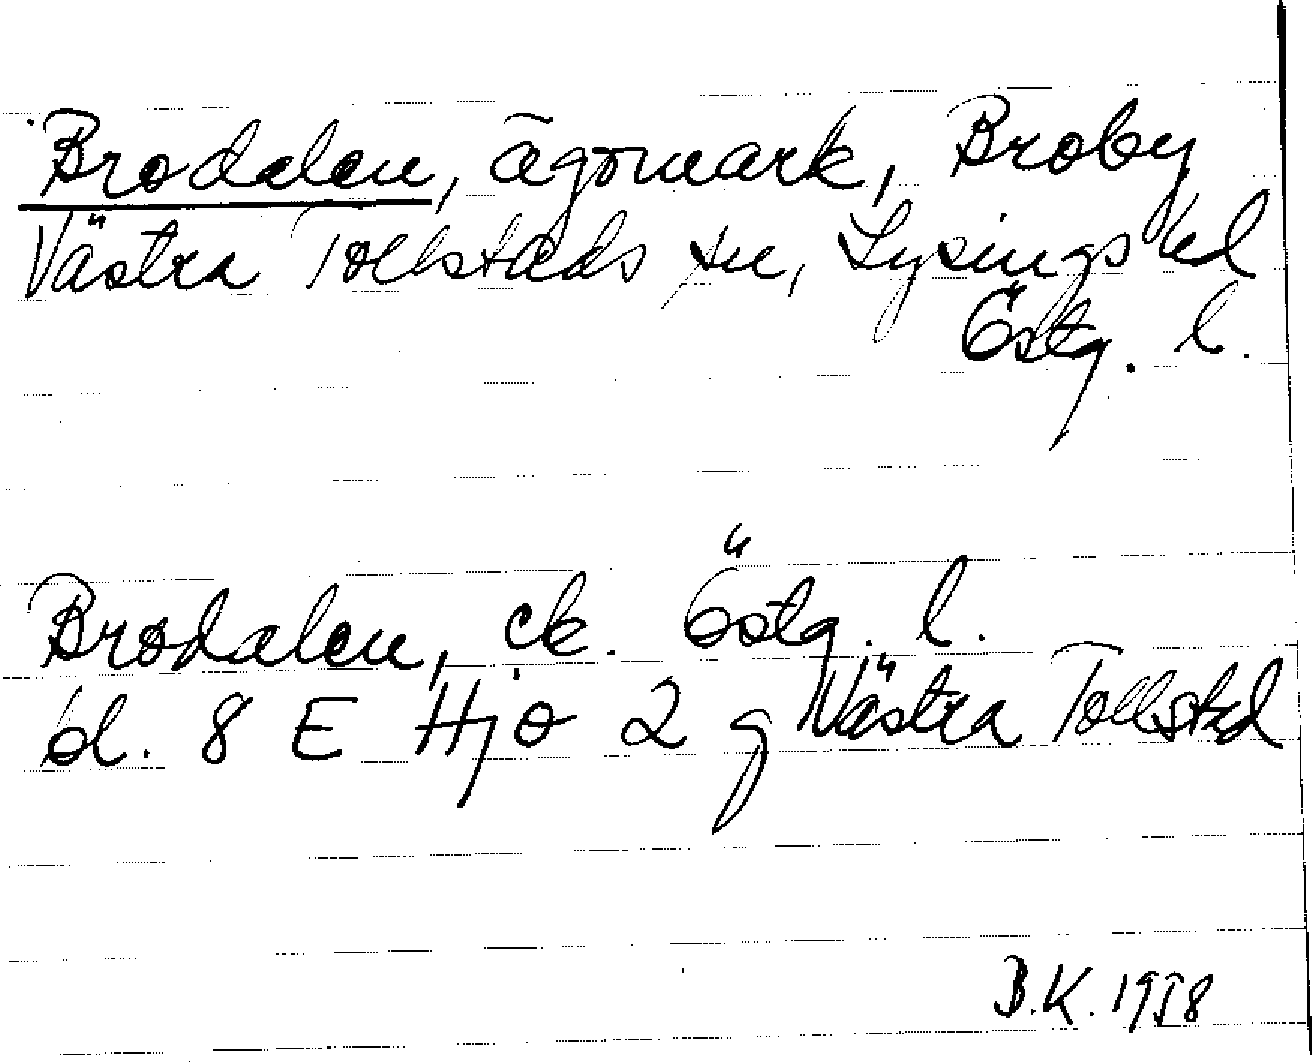 Brodalen, ägomark, Broby
Västra Tollstads sn, Lysings hd
Östg. l.
Brodalen, ek. Östg. l.
bl. 8 E Hjo 2 g Västra Tollstad
B.K. 1958